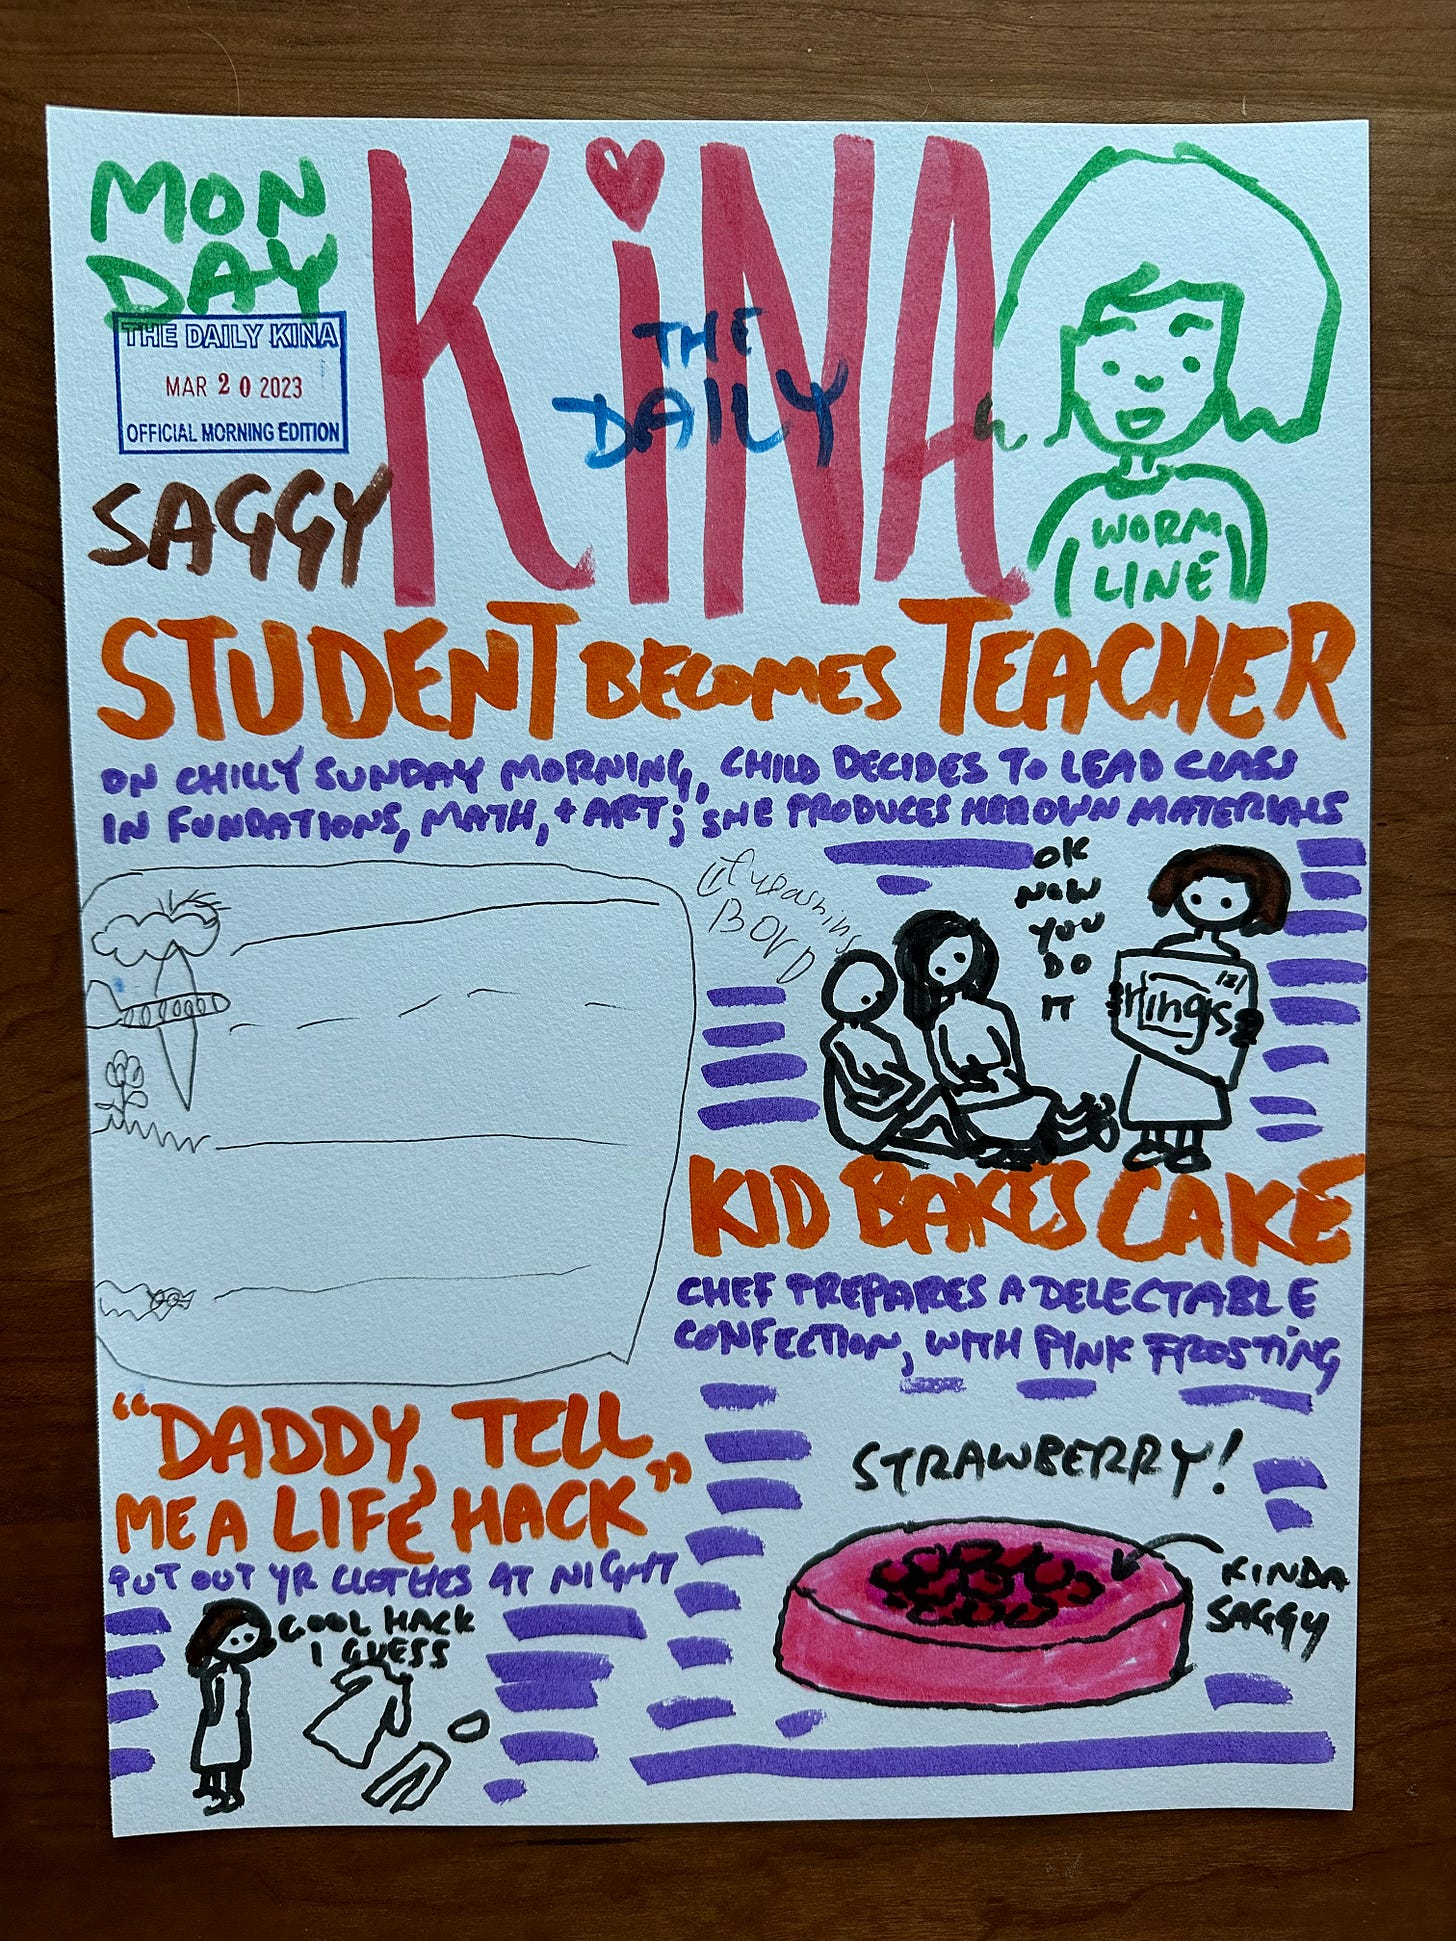 MON
DAY
THE DAILY KINA
MAR 20 2023
OFFICIAL MORNING EDITION
SAGGY
KiNA
THE
DAILY
WORM
LINE
STUDENT BECOMES TEACHER
ON CHILLY SUNDAY MORNING, CHILD DECIDES TO LEAD CLASS
IN FUNDATIONS, MATH, + ART; SHE PRODUCES HER OWN MATERIALS
BOVD
OK
NOW
YOU
DO
IT
KID BAKES CAKE
CHEF PREPARES A DELECTABLE
CONFECTION, WITH PINK FROSTING
"DADDY, TELL
ME A LIFE HACK"
PUT OUT YR CLOTHES AT NIGHT
COOL HACK
I GUESS
STRAWBERRY!
KINDA
SAGGY